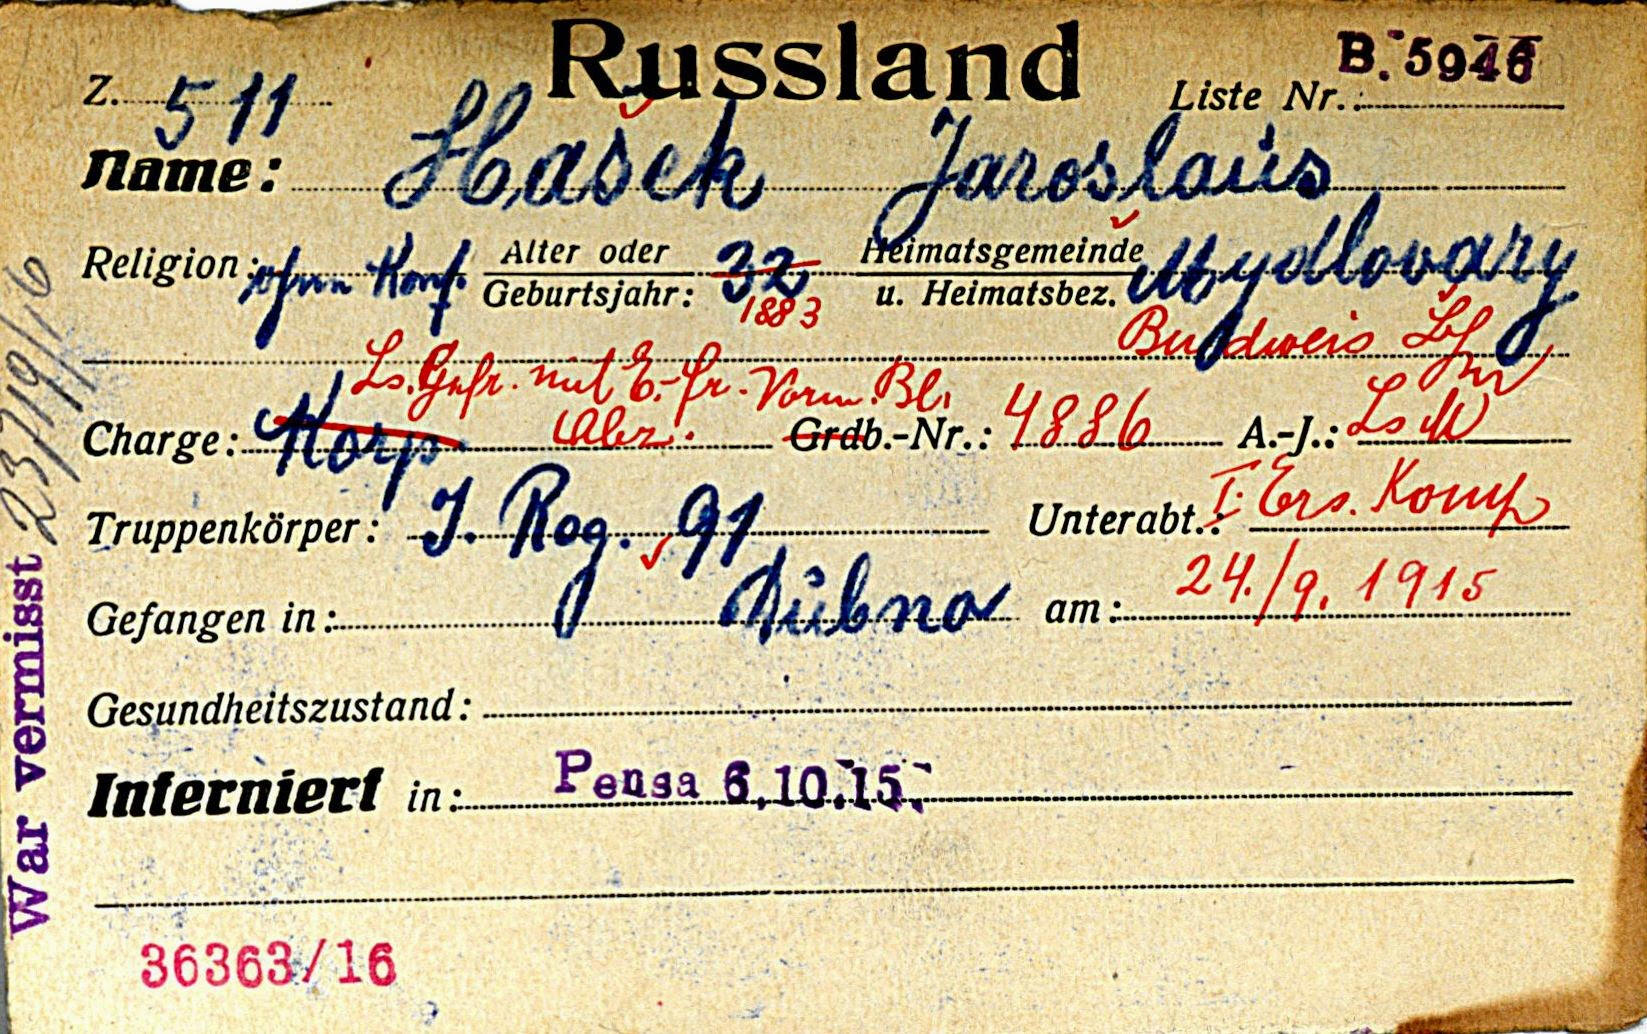 Russland
B. 5946
Z. 511 Liste Nr.:
Name: Hašek Jaroslaus
Religion: ohne Konf. Alter oder Geburtsjahr: 32 1883 Heimatsgemeinde u. Heimatsbez. Mydlovary
Budweis
Ls. Gefr. mit E.-fr. Vorm. Bl.
Charge: Korp Abz. Grdb.-Nr.: 4886 A.-J.: LsM
Truppenkörper: J. Reg. 91 Unterabt.: I. Ers. Komp
Gefangen in: Dubno am: 24./9. 1915
Gesundheitszustand:
Interniert in: Pensa 6.10.15.
36363/16
War vermisst 23719/16